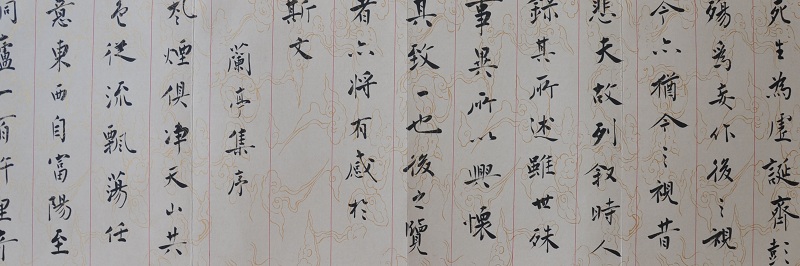 死生為虛誕齊彭
殤為妄作後之視
今亦猶今之視昔
悲夫故列叙時人
錄其所述雖世殊
事異所以興懷
其致一也後之覽
者亦將有感於
斯文
蘭亭集序
風煙俱凈天山共
色從流飄蕩任
意東西自富陽至
桐廬一百許里奇